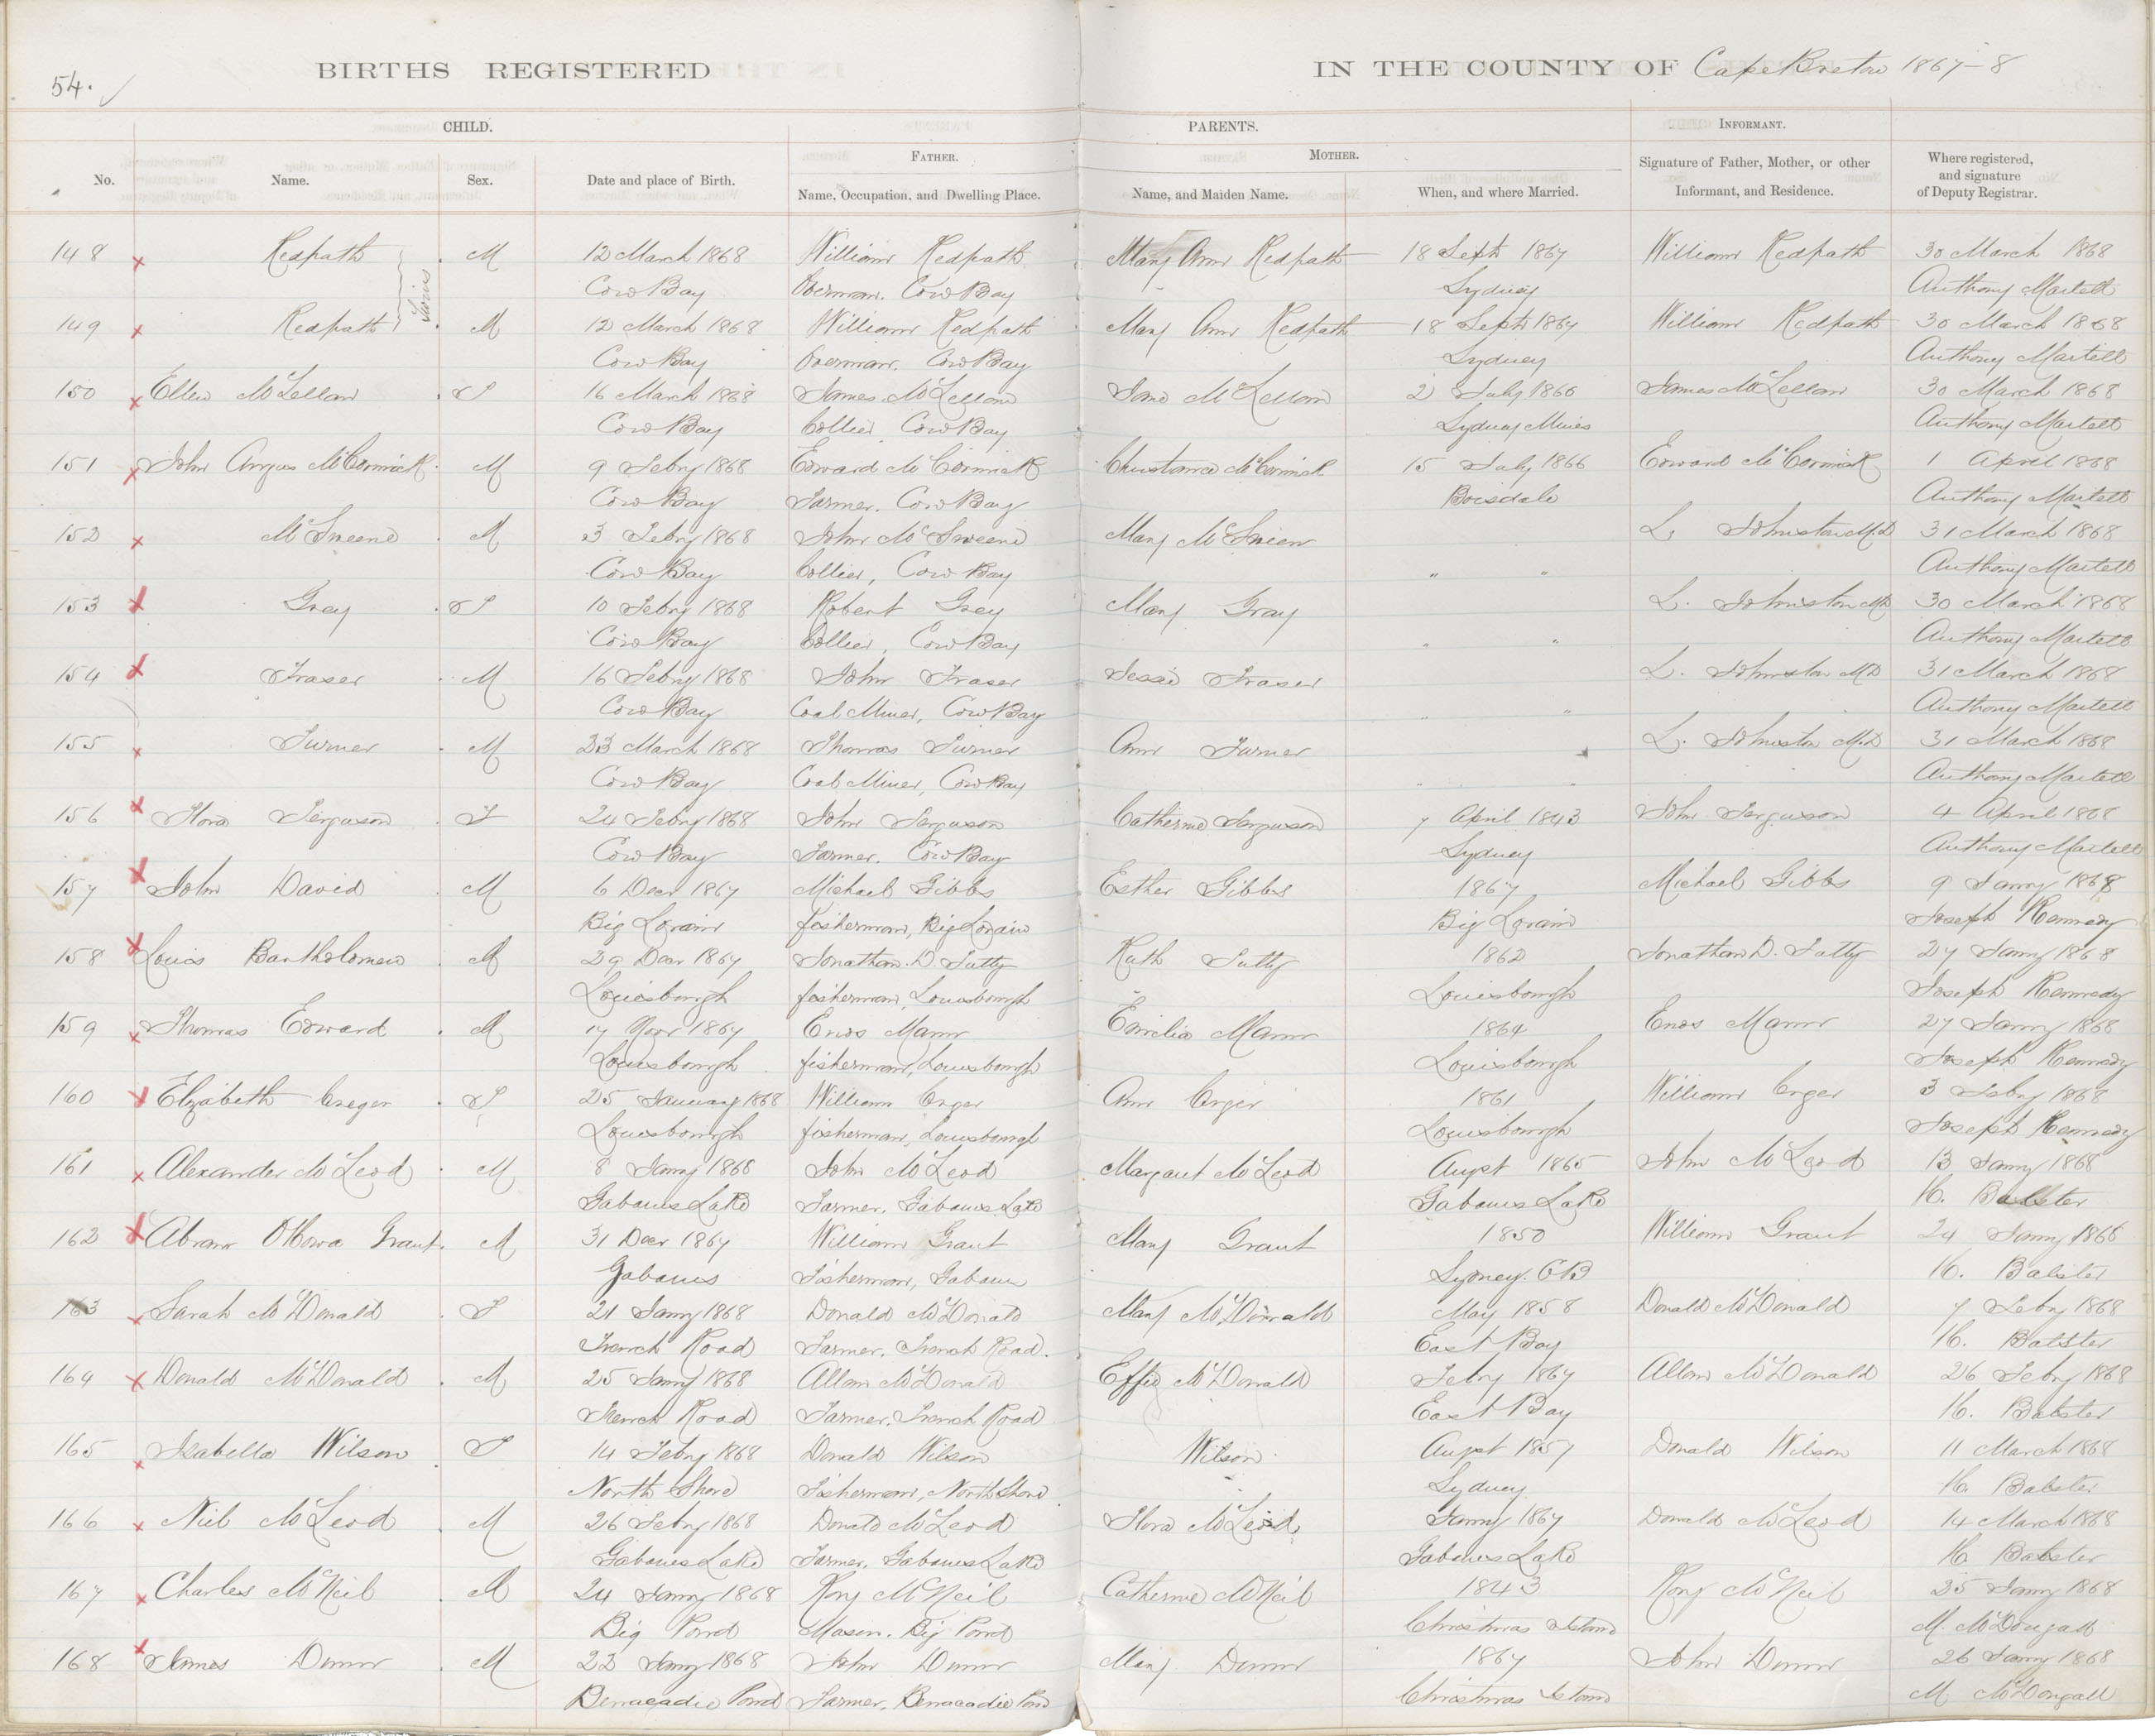 54.
BIRTHS REGISTERED IN THE COUNTY OF Cape Breton 1867-8
CHILD. PARENTS. INFORMANT.
FATHER. MOTHER.
No. Name. Sex. Date and place of Birth. Name, Occupation, and Dwelling Place. Name, and Maiden Name. When, and where Married. Signature of Father, Mother, or other Informant, and Residence. Where registered, and signature of Deputy Registrar.
148 Redpath M 12 March 1868 William Redpath Mary Ann Redpath 18 Sept 1867 William Redpath 30 March 1868
Cow Bay Overman. Cow Bay Sydney Anthony Martell
149 Redpath M 12 March 1868 William Redpath Mary Ann Redpath 18 Sept 1867 William Redpath 30 March 1868
Cow Bay Overman. Cow Bay Sydney Anthony Martell
150 Ellen McLellan F 16 March 1868 James McLellan Jane McLellan 2 July 1866 James McLellan 30 March 1868
Cow Bay Collier Cow Bay Sydney Mines Anthony Martell
151 John Angus McCormick M 9 Febry 1868 Edward McCormick McCormick 15 July 1866 Edward McCormick 1 April 1868
Cow Bay Farmer. Cow Bay Boisdale Anthony Martell
152 M 3 Febry 1868 John Mary L. Johnston M.D 31 March 1868
Cow Bay Collier, Cow Bay " " Anthony Martell
153 Gray F 10 Febry 1868 Robert Gray Mary Gray L. Johnston MD 30 March 1868
Cow Bay Collier, Cow Bay " " Anthony Martell
154 Fraser M 16 Febry 1868 John Fraser Jessie Fraser L. Johnston MD 31 March 1868
Cow Bay Coal Miner, Cow Bay " " Anthony Martell
155 Turner M 23 March 1868 Thomas Turner Ann Turner L. Johnston M.D 31 March 1868
Cow Bay Coal Miner, Cow Bay " " Anthony Martell
156 Flora Ferguson F 24 Febry 1868 John Ferguson Catherine Ferguson 7 April 1843 John Ferguson 4 April 1868
Cow Bay Farmer. Cow Bay Sydney Anthony Martell
157 John David M 6 Decr 1867 Michael Gibbs Esther Gibbs 1867 Michael Gibbs 9 Janry 1868
Big Lorain fisherman, Big Lorain Big Lorain Joseph Kennedy
158 Louis Bartholomew M 29 Decr 1867 Jonathan D. Tutty Ruth Tutty 1862 Jonathan D. Tutty 27 Janry 1868
Louisbourgh fisherman, Louisbourgh Louisbourgh Joseph Kennedy
159 Thomas Edward M 17 Novr 1867 Enos Mann Emilia Mann 1864 Enos Mann 27 Janry 1868
Louisbourgh fisherman, Louisbourgh Louisbourgh Joseph Kennedy
160 Elizabeth Creger F 25 January 1868 William Ann 1861 William 3 Febry 1868
Louisbourgh fisherman, Louisbourgh Louisbourgh Joseph Kennedy
161 Alexander McLeod M 8 Janry 1868 John McLeod Margaret McLeod Augst 1865 John McLeod 13 Janry 1868
Gabarus Lake Farmer. Gabarus Lake Gabarus Lake H. Balster
162 Abram Grant M 31 Decr 1867 William Grant Mary Grant 1850 William Grant 24 Janry 1868
Gabarus Fisherman, Gabarus Sydney. CB H. Balster
163 Sarah McDonald F 21 Janry 1868 Donald McDonald Mary McDonald May 1858 Donald McDonald 7 Febry 1868
French Road Farmer. French Road. East Bay H. Balster
164 Donald McDonald M 25 Janry 1868 Allan McDonald Effie McDonald Febry 1867 Allan McDonald 26 Febry 1868
French Road Farmer. French Road East Bay H. Balster
165 Isabella Wilson F 14 Febry 1868 Donald Wilson Wilson Augst 1857 Donald Wilson 11 March 1868
North Shore Fisherman, North Shore Sydney H. Balster
166 Neil McLeod M 26 Febry 1868 Donald McLeod Flora McLeod Janry 1867 Donald McLeod 14 March 1868
Gabarus Lake Farmer. Gabarus Lake Gabarus Lake H. Balster
167 Charles McNeil M 24 Janry 1868 Rory McNeil Catherine McNeil 1843 Rory McNeil 25 Janry 1868
Big Pond Mason. Big Pond Christmas Island M. McDougall
168 James Dunn M 22 Janry 1868 John Dunn Mary Dunn 1867 John Dunn 26 Janry 1868
Benacadie Pond Farmer, Benacadie Pond Christmas Island M. McDougall